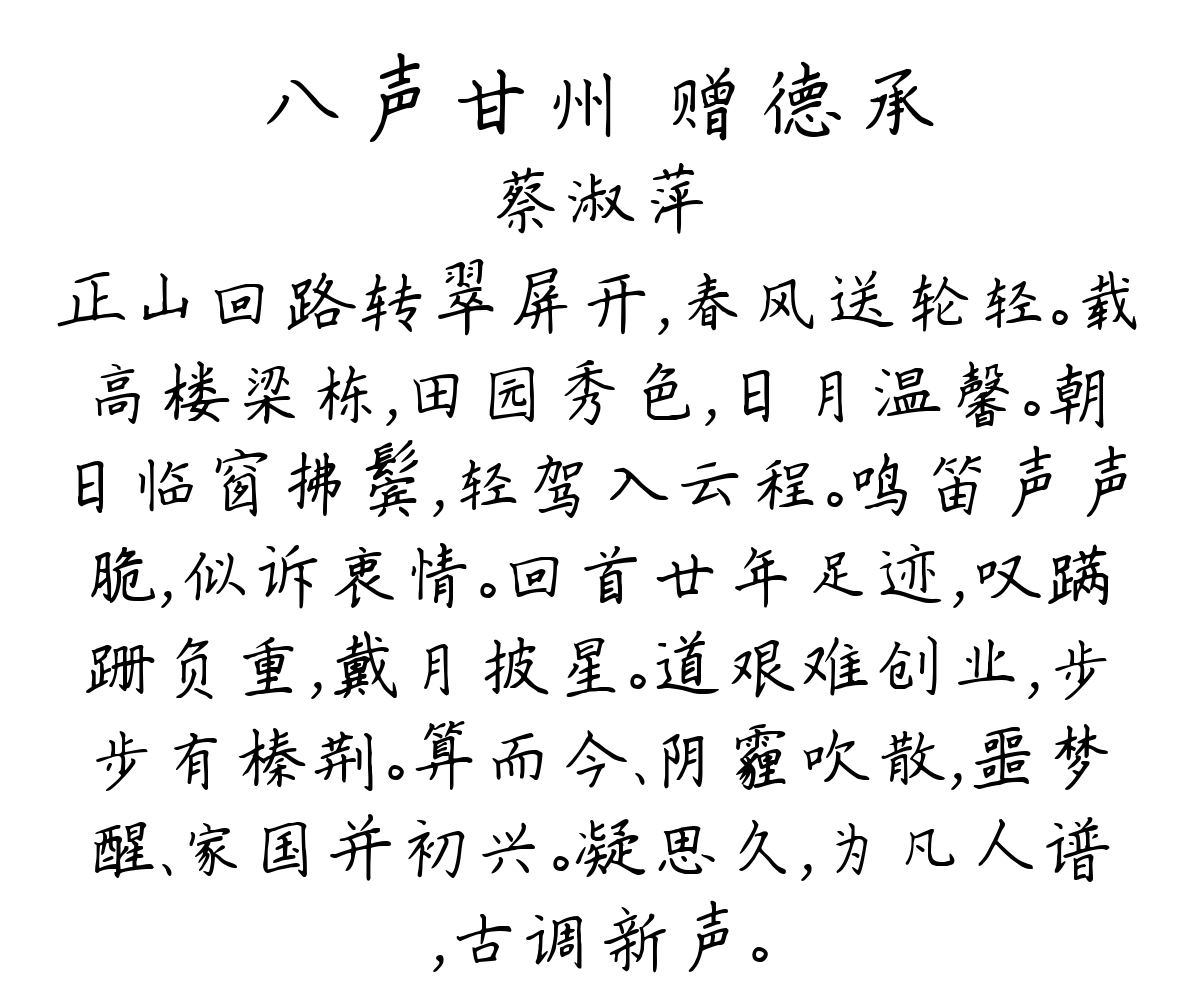 八声甘州 赠德承
蔡淑萍
正山回路转翠屏开,春风送轮轻。载
高楼梁栋,田园秀色,日月温馨。朝
日临窗拂鬓,轻驾入云程。鸣笛声声
脆,似诉衷情。回首廿年足迹,叹蹒
跚负重,戴月披星。道艰难创业,步
步有榛荆。算而今、阴霾吹散,噩梦
醒、家国并初兴。凝思久,为凡人谱
,古调新声。